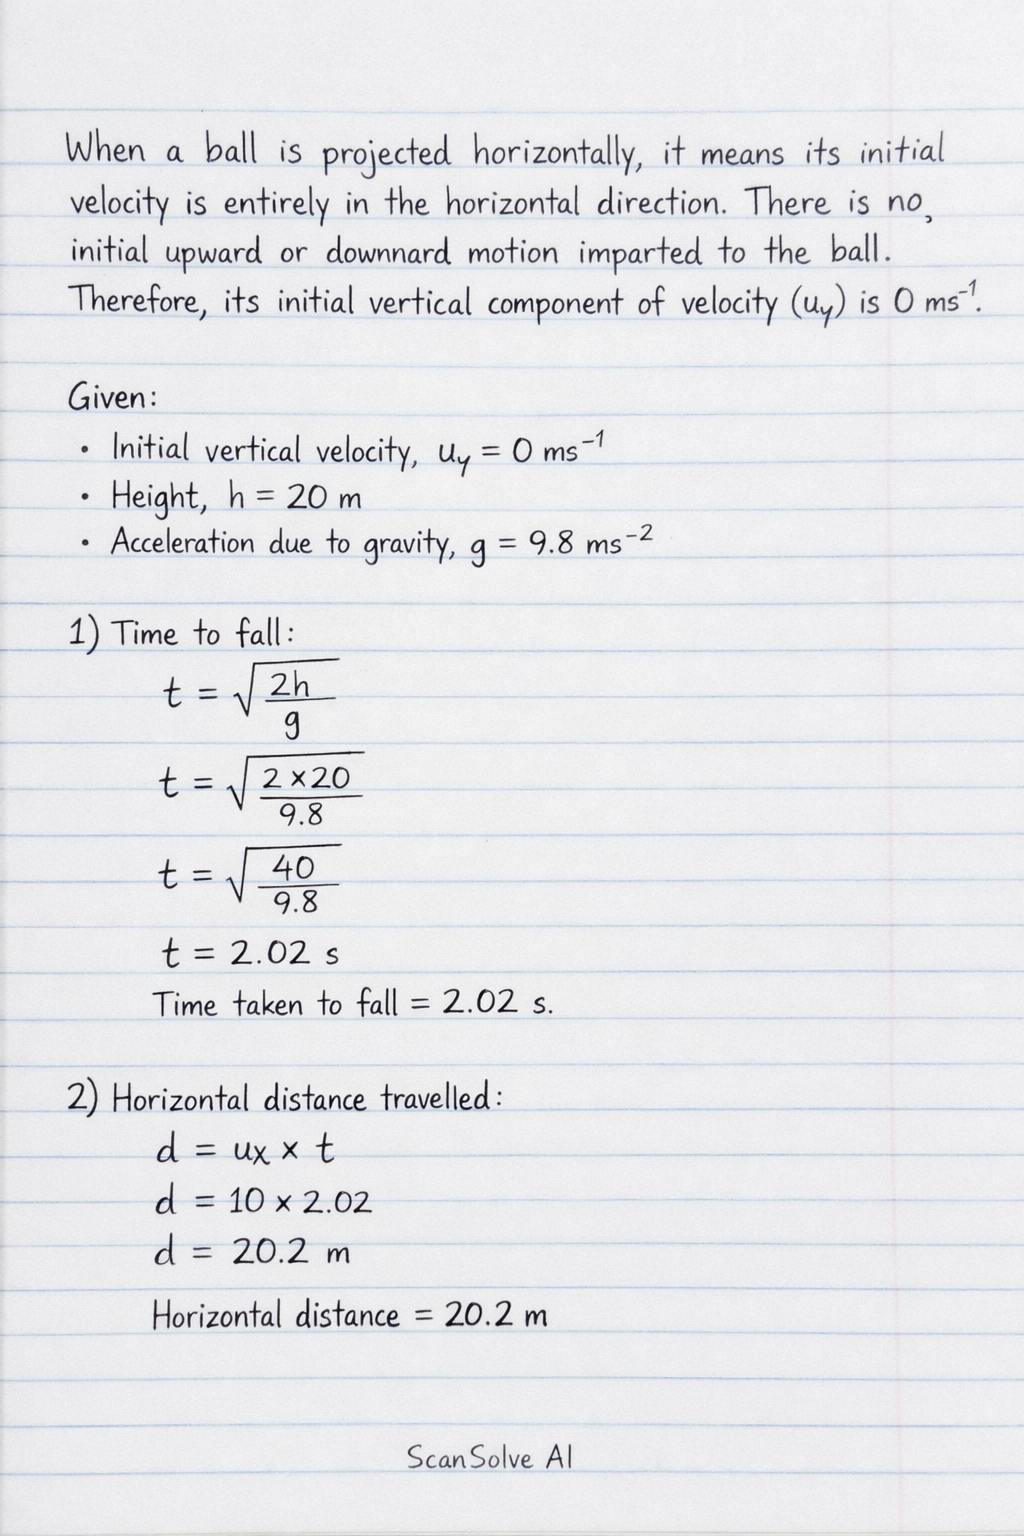 When a ball is projected horizontally, it means its initial
velocity is entirely in the horizontal direction. There is no,
initial upward or downnard motion imparted to the ball.
Therefore, its initial vertical component of velocity (uy) is 0 ms⁻¹.
Given:
• Initial vertical velocity, uy = 0 ms⁻¹
• Height, h = 20 m
• Acceleration due to gravity, g = 9.8 ms⁻²
1) Time to fall:
t = √(2h/g)
t = √(2 × 20/9.8)
t = √(40/9.8)
t = 2.02 s
Time taken to fall = 2.02 s.
2) Horizontal distance travelled:
d = ux × t
d = 10 × 2.02
d = 20.2 m
Horizontal distance = 20.2 m
ScanSolve AI